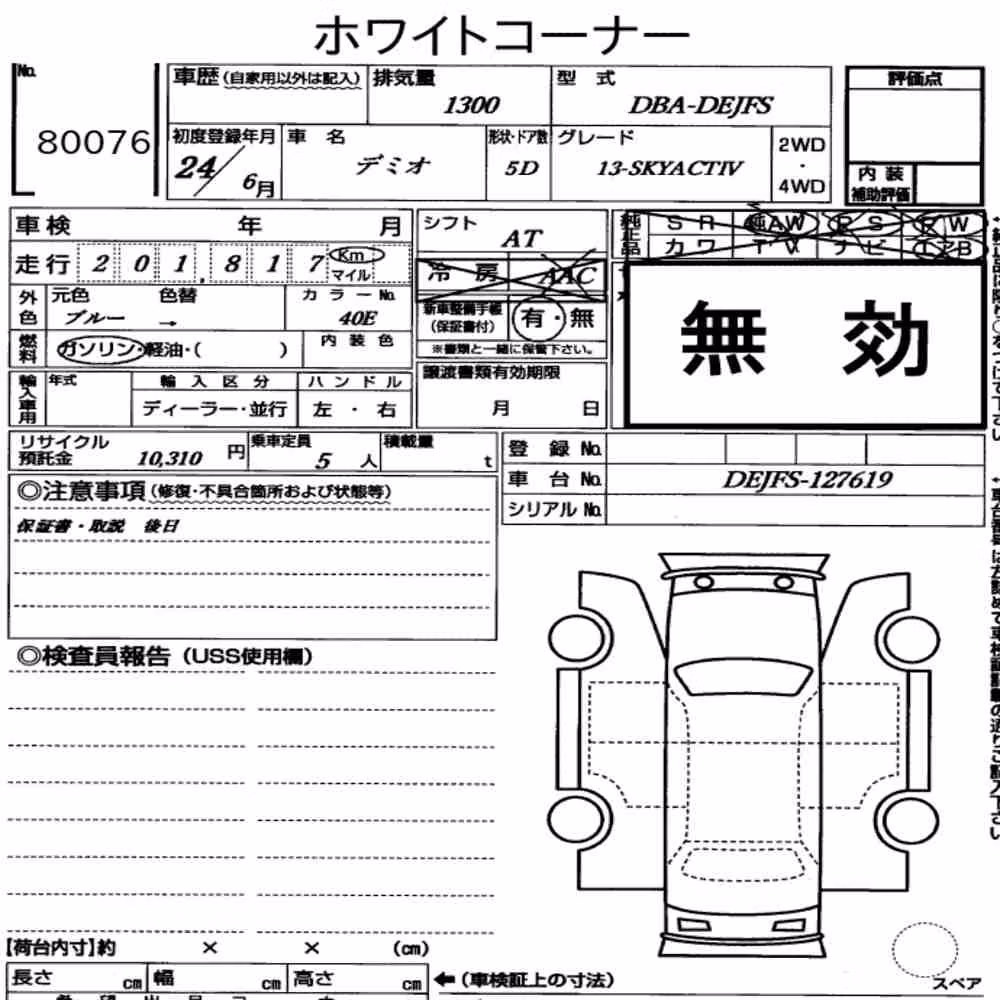 ホワイトコーナー
No.
80076
車歴(自家用以外は記入)
排気量
1300
型 式
DBA-DEJFS
評価点
初度登録年月
24/6月
車 名
デミオ
形状・ドア数
5D
グレード
13-SKYACTIV
2WD
・
4WD
内 装
補助評価
車検 年 月
走行 201,817 Km マイル
シフト
AT
純正品
SR 純AW PS PW
カワ TV ナビ エアB
冷 房 AAC
外色
元色 色替
ブルー →
カラーNo.
40E
新車整備手帳
(保証書付)
有・無
※書類と一緒に保管下さい。
無 効
燃料
ガソリン・軽油・( )
内 装 色
輸入車用
年式
輸 入 区 分
ディーラー・並行
ハ ン ド ル
左 ・ 右
譲渡書類有効期限
月 日
リサイクル
預託金
10,310 円
乗車定員
5 人
積載量
t
登 録 No.
車 台 No.
DEJFS-127619
シリアル No.
◎注意事項(修復・不具合箇所および状態等)
保証書・取説 後日
◎検査員報告(USS使用欄)
【荷台内寸】約 × × (cm)
長さ cm 幅 cm 高さ cm
←(車検証上の寸法)
スペア